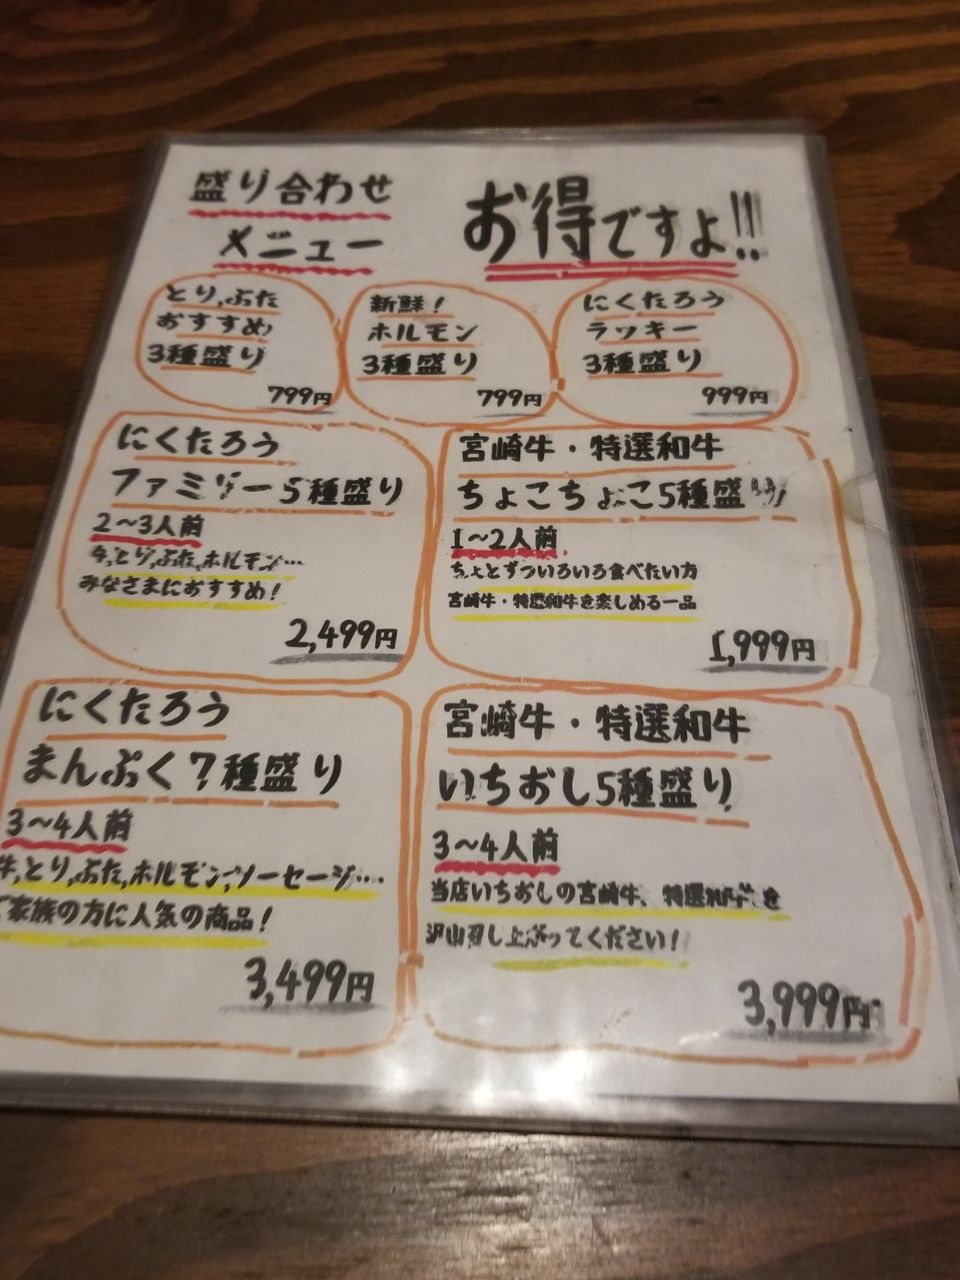 盛り合わせ
メニュー
お得ですよ!!!
とり,ぶた
おすすめ
3種盛り
799円
新鮮!
ホルモン
3種盛り
799円
にくたろう
ラッキー
3種盛り
999円
にくたろう
ファミリー5種盛り
2〜3人前
牛,とり,ぶた,ホルモン…
みなさまにおすすめ!
2,499円
宮崎牛・特選和牛
ちょこちょこ5種盛り
1〜2人前
ちょとずついろいろ食べたい方
宮崎牛・特選和牛を楽しめる一品
1,999円
にくたろう
まんぷく7種盛り
3〜4人前
牛,とり,ぶた,ホルモン,ソーセージ…
ご家族の方に人気の商品!
3,499円
宮崎牛・特選和牛
いちおし5種盛り
3〜4人前
当店いちおしの宮崎牛、特選和牛を
沢山召し上がってください!
3,999円